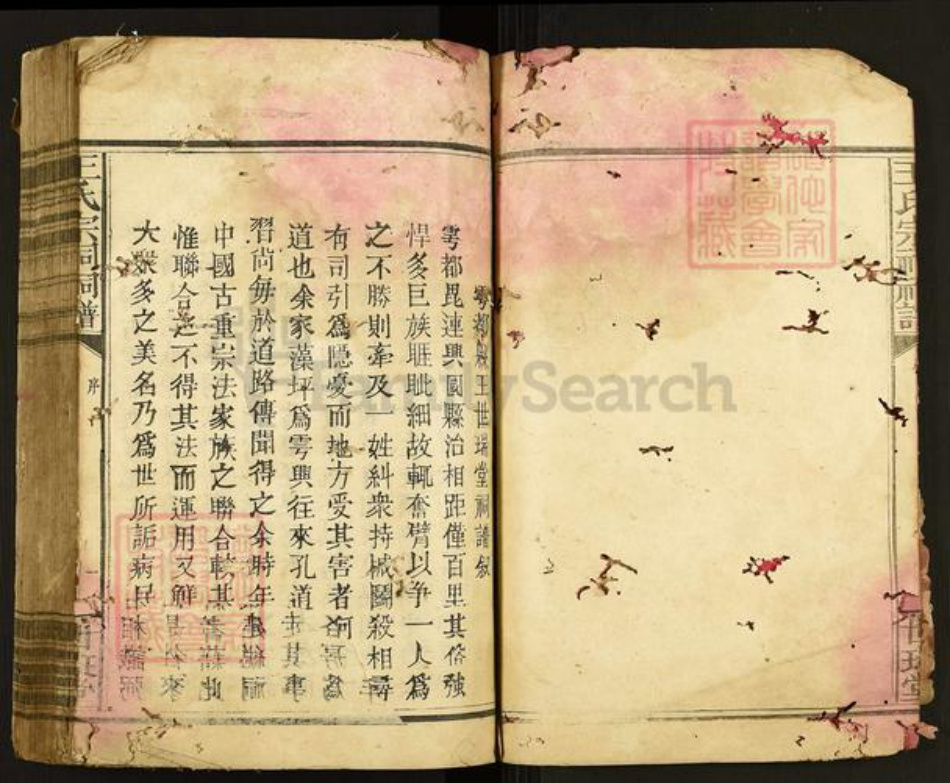 雩都縣王世瑞堂祠譜敘
雩都毘連興國縣治相距僅百里其俗強
悍多巨族睚眦細故輒奮臂以爭一人為
之不勝則牽及 姓糾衆持械鬭殺相尋
有司引為隱憂而地方受其害者
道也余家藻坪為雩興往來孔道 其事
習尚每於道路傳聞得之余時年
中國古重宗法家族之聯合較其 此
惟聯合之不得其法而運用又鮮
大衆多之美名乃為世所詬病民相
王氏宗祠祠譜
序
世瑞堂
FamilySearch